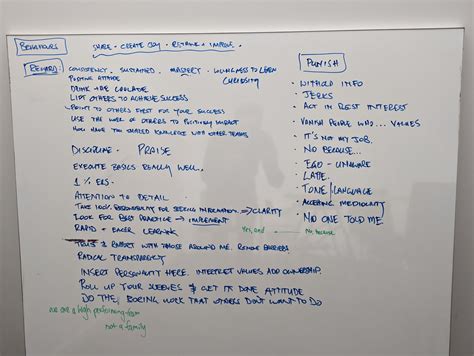 BEHAVIOURS
SHARE • CREATE JOY • RETHINK & IMPROVE •
REWARD
CONSISTENCY • SUSTAINED • MASTERY • WILLINGNESS TO LEARN
CURIOSITY
POSITIVE ATTITUDE
DRINK THE COOLAIDE
LIFT OTHERS TO ACHIEVE SUCCESS
POINT TO OTHERS FIRST FOR YOUR SUCCESS
USE THE WORK OF OTHERS TO POSITIVELY IMPACT
HOW HAVE YOU SHARED KNOWLEDGE WITH OTHER TEAMS
DISCIPLINE. PRAISE
EXECUTE BASICS REALLY WELL..
1% ERS.
ATTENTION TO DETAIL
TAKE 100% RESPONSIBILITY FOR SEEKING INFORMATION → CLARITY
LOOK FOR BEST PRACTICE → IMPLEMENT
RAPID + EAGER LEARNING
TRUST & RESPECT WITH THOSE AROUND ME. REMOVE BARRIERS.
RADICAL TRANSPARENCY
INSERT PERSONALITY HERE. INTERSECT VALUES ADD OWNERSHIP.
ROLL UP YOUR SLEEVES & GET IT DONE ATTITUDE
DO THE BORING WORK THAT OTHERS DON'T WANT TO DO
we are a high performing team
not a family
PUNISH
• WITHOLD INFO
• JERKS
• ACT IN BEST INTEREST
• VANISH PEOPLE WHO... VALUES
• IT'S NOT MY JOB.
• NO BECAUSE...
• EGO - UNAWARE
• LATE.
• TONE/LANGUAGE
• ACCEPTING MEDIOCRITY
• NO ONE TOLD ME.
Yes, and — No, because